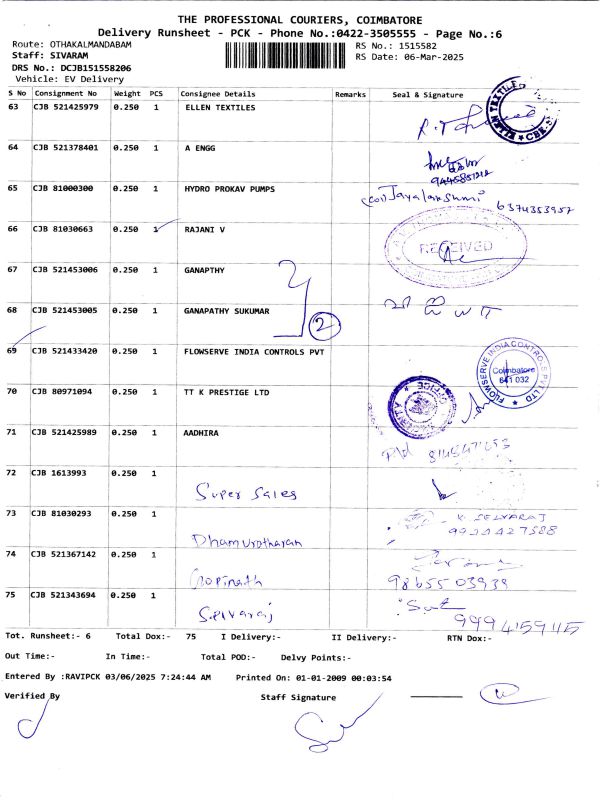 THE PROFESSIONAL COURIERS, COIMBATORE
Delivery Runsheet - PCK - Phone No.:0422-3505555 - Page No.:6
Route: OTHAKALMANDABAM
RS No.: 1515582
Staff: SIVARAM
RS Date: 06-Mar-2025
DRS No.: DCJB151558206
Vehicle: EV Delivery
S No Consignment No Weight PCS Consignee Details Remarks Seal & Signature
63 CJB 521425979 0.250 1 ELLEN TEXTILES
64 CJB 521378401 0.250 1 A ENGG
65 CJB 81000300 0.250 1 HYDRO PROKAV PUMPS Jayalakshmi 6374353957
66 CJB 81030663 0.250 1 RAJANI V RECEIVED
67 CJB 521453006 0.250 1 GANAPTHY
68 CJB 521453005 0.250 1 GANAPATHY SUKUMAR 2
69 CJB 521433420 0.250 1 FLOWSERVE INDIA CONTROLS PVT FLOWSERVE INDIA CONTROLS PVT LTD Coimbatore 641 032
70 CJB 80971094 0.250 1 TT K PRESTIGE LTD
71 CJB 521425989 0.250 1 AADHIRA
72 CJB 1613993 0.250 1 Super Sales
73 CJB 81030293 0.250 1 Dhamurotharan K. SELVARAJ
74 CJB 521367142 0.250 1 Gopinath 9865503939
75 CJB 521343694 0.250 1 Selvaraj 9994159115
Tot. Runsheet:- 6 Total Dox:- 75 I Delivery:- II Delivery:- RTN Dox:-
Out Time:- In Time:- Total POD:- Delvy Points:-
Entered By :RAVIPCK 03/06/2025 7:24:44 AM Printed On: 01-01-2009 00:03:54
Verified By Staff Signature